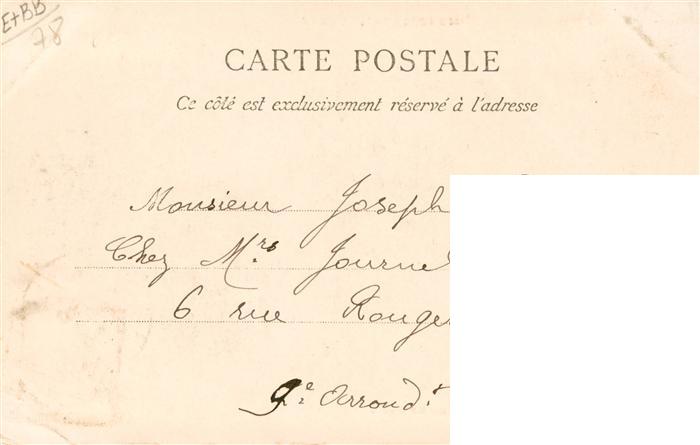 E+BB
78
CARTE POSTALE
Ce côté est exclusivement réservé à l'adresse
Monsieur Joseph
Chez Mrs Journe
6 rue Rouge
9.e Arrond.t